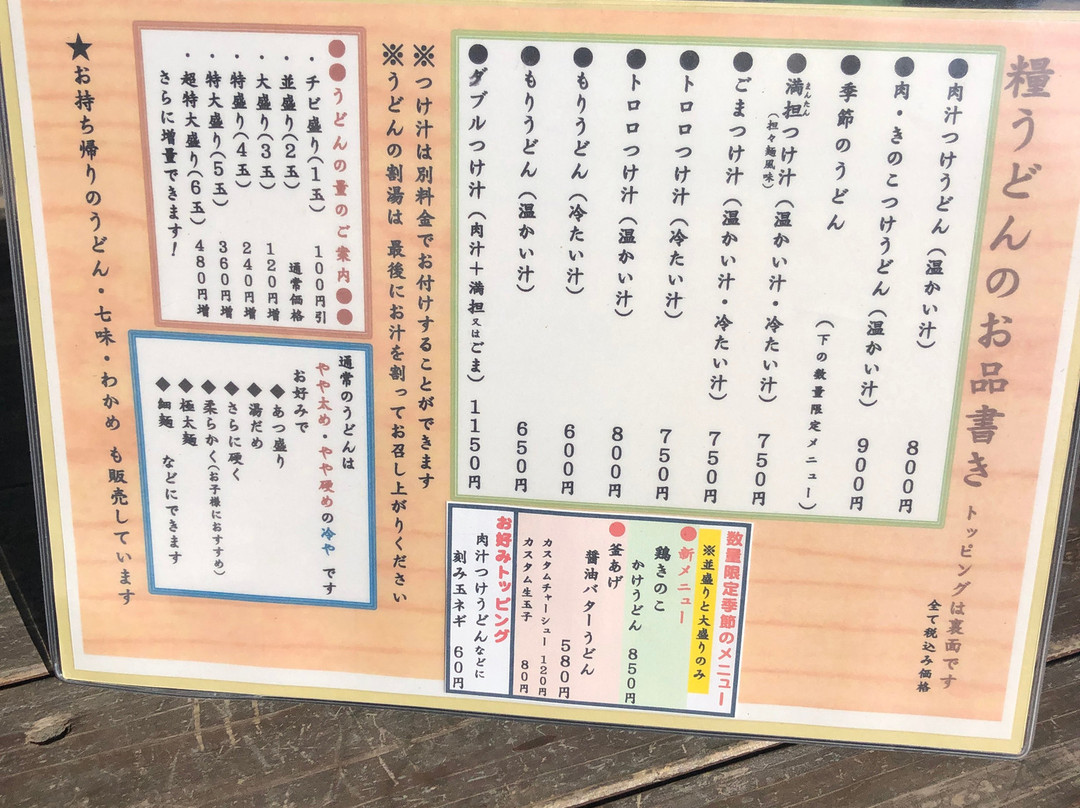 糧うどんのお品書き
トッピングは裏面です
全て税込み価格
●肉汁つけうどん（温かい汁） 800円
●肉・きのこつけうどん（温かい汁） 900円
●季節のうどん （下の数量限定メニュー）
●満担つけ汁（温かい汁・冷たい汁） 750円
まんたん
（担々麺風味）
●ごまつけ汁（温かい汁・冷たい汁） 750円
●トロロつけ汁（冷たい汁） 750円
●トロロつけ汁（温かい汁） 800円
●もりうどん（冷たい汁） 600円
●もりうどん（温かい汁） 650円
●ダブルつけ汁（肉汁＋満担又はごま） 1150円
数量限定季節のメニュー
※並盛りと大盛りのみ
●新メニュー
鶏きのこ
かけうどん 850円
●釜あげ
醤油バターうどん
580円
カスタムチャーシュー 120円
カスタム生玉子 80円
お好みトッピング
肉汁つけうどんなどに
刻み玉ネギ 60円
※つけ汁は別料金でお付けすることができます
※うどんの割湯は 最後にお汁を割ってお召し上がりください
●●うどんの量のご案内●●
・チビ盛り(1玉) 100円引
・並盛り(2玉) 通常価格
・大盛り(3玉) 120円増
・特盛り(4玉) 240円増
・特大盛り(5玉) 360円増
・超特大盛り(6玉) 480円増
さらに増量できます！
通常のうどんは
やや太め・やや硬めの冷や です
お好みで
◆あつ盛り
◆湯だめ
◆さらに硬く
◆柔らかく(お子様におすすめ)
◆極太麺
◆細麺 などにできます
★お持ち帰りのうどん・七味・わかめ も販売しています